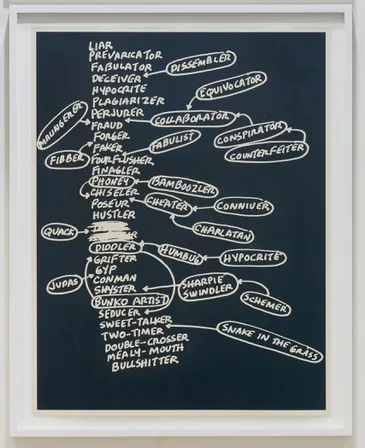 LIAR
PREVARICATOR
FABULATOR
DISSEMBLER
DECEIVER
EQUIVOCATOR
HYPOCRITE
PLAGIARIZER
PERJURER
COLLABORATOR
MALINGERER
FRAUD
CONSPIRATOR
FORGER
FABULIST
COUNTERFEITER
FAKER
FIBBER
FOURFLUSHER
FINAGLER
PHONEY
BAMBOOZLER
CHISELER
POSEUR
CHEATER
CONNIVER
HUSTLER
QUACK
CHARLATAN
DIDDLER
HUMBUG
HYPOCRITE
GRIFTER
GYP
JUDAS
CONMAN
SHARPIE
SWINDLER
SHYSTER
SCHEMER
BUNKO ARTIST
SEDUCER
SWEET-TALKER
SNAKE IN THE GRASS
TWO-TIMER
DOUBLE-CROSSER
MEALY-MOUTH
BULLSHITTER